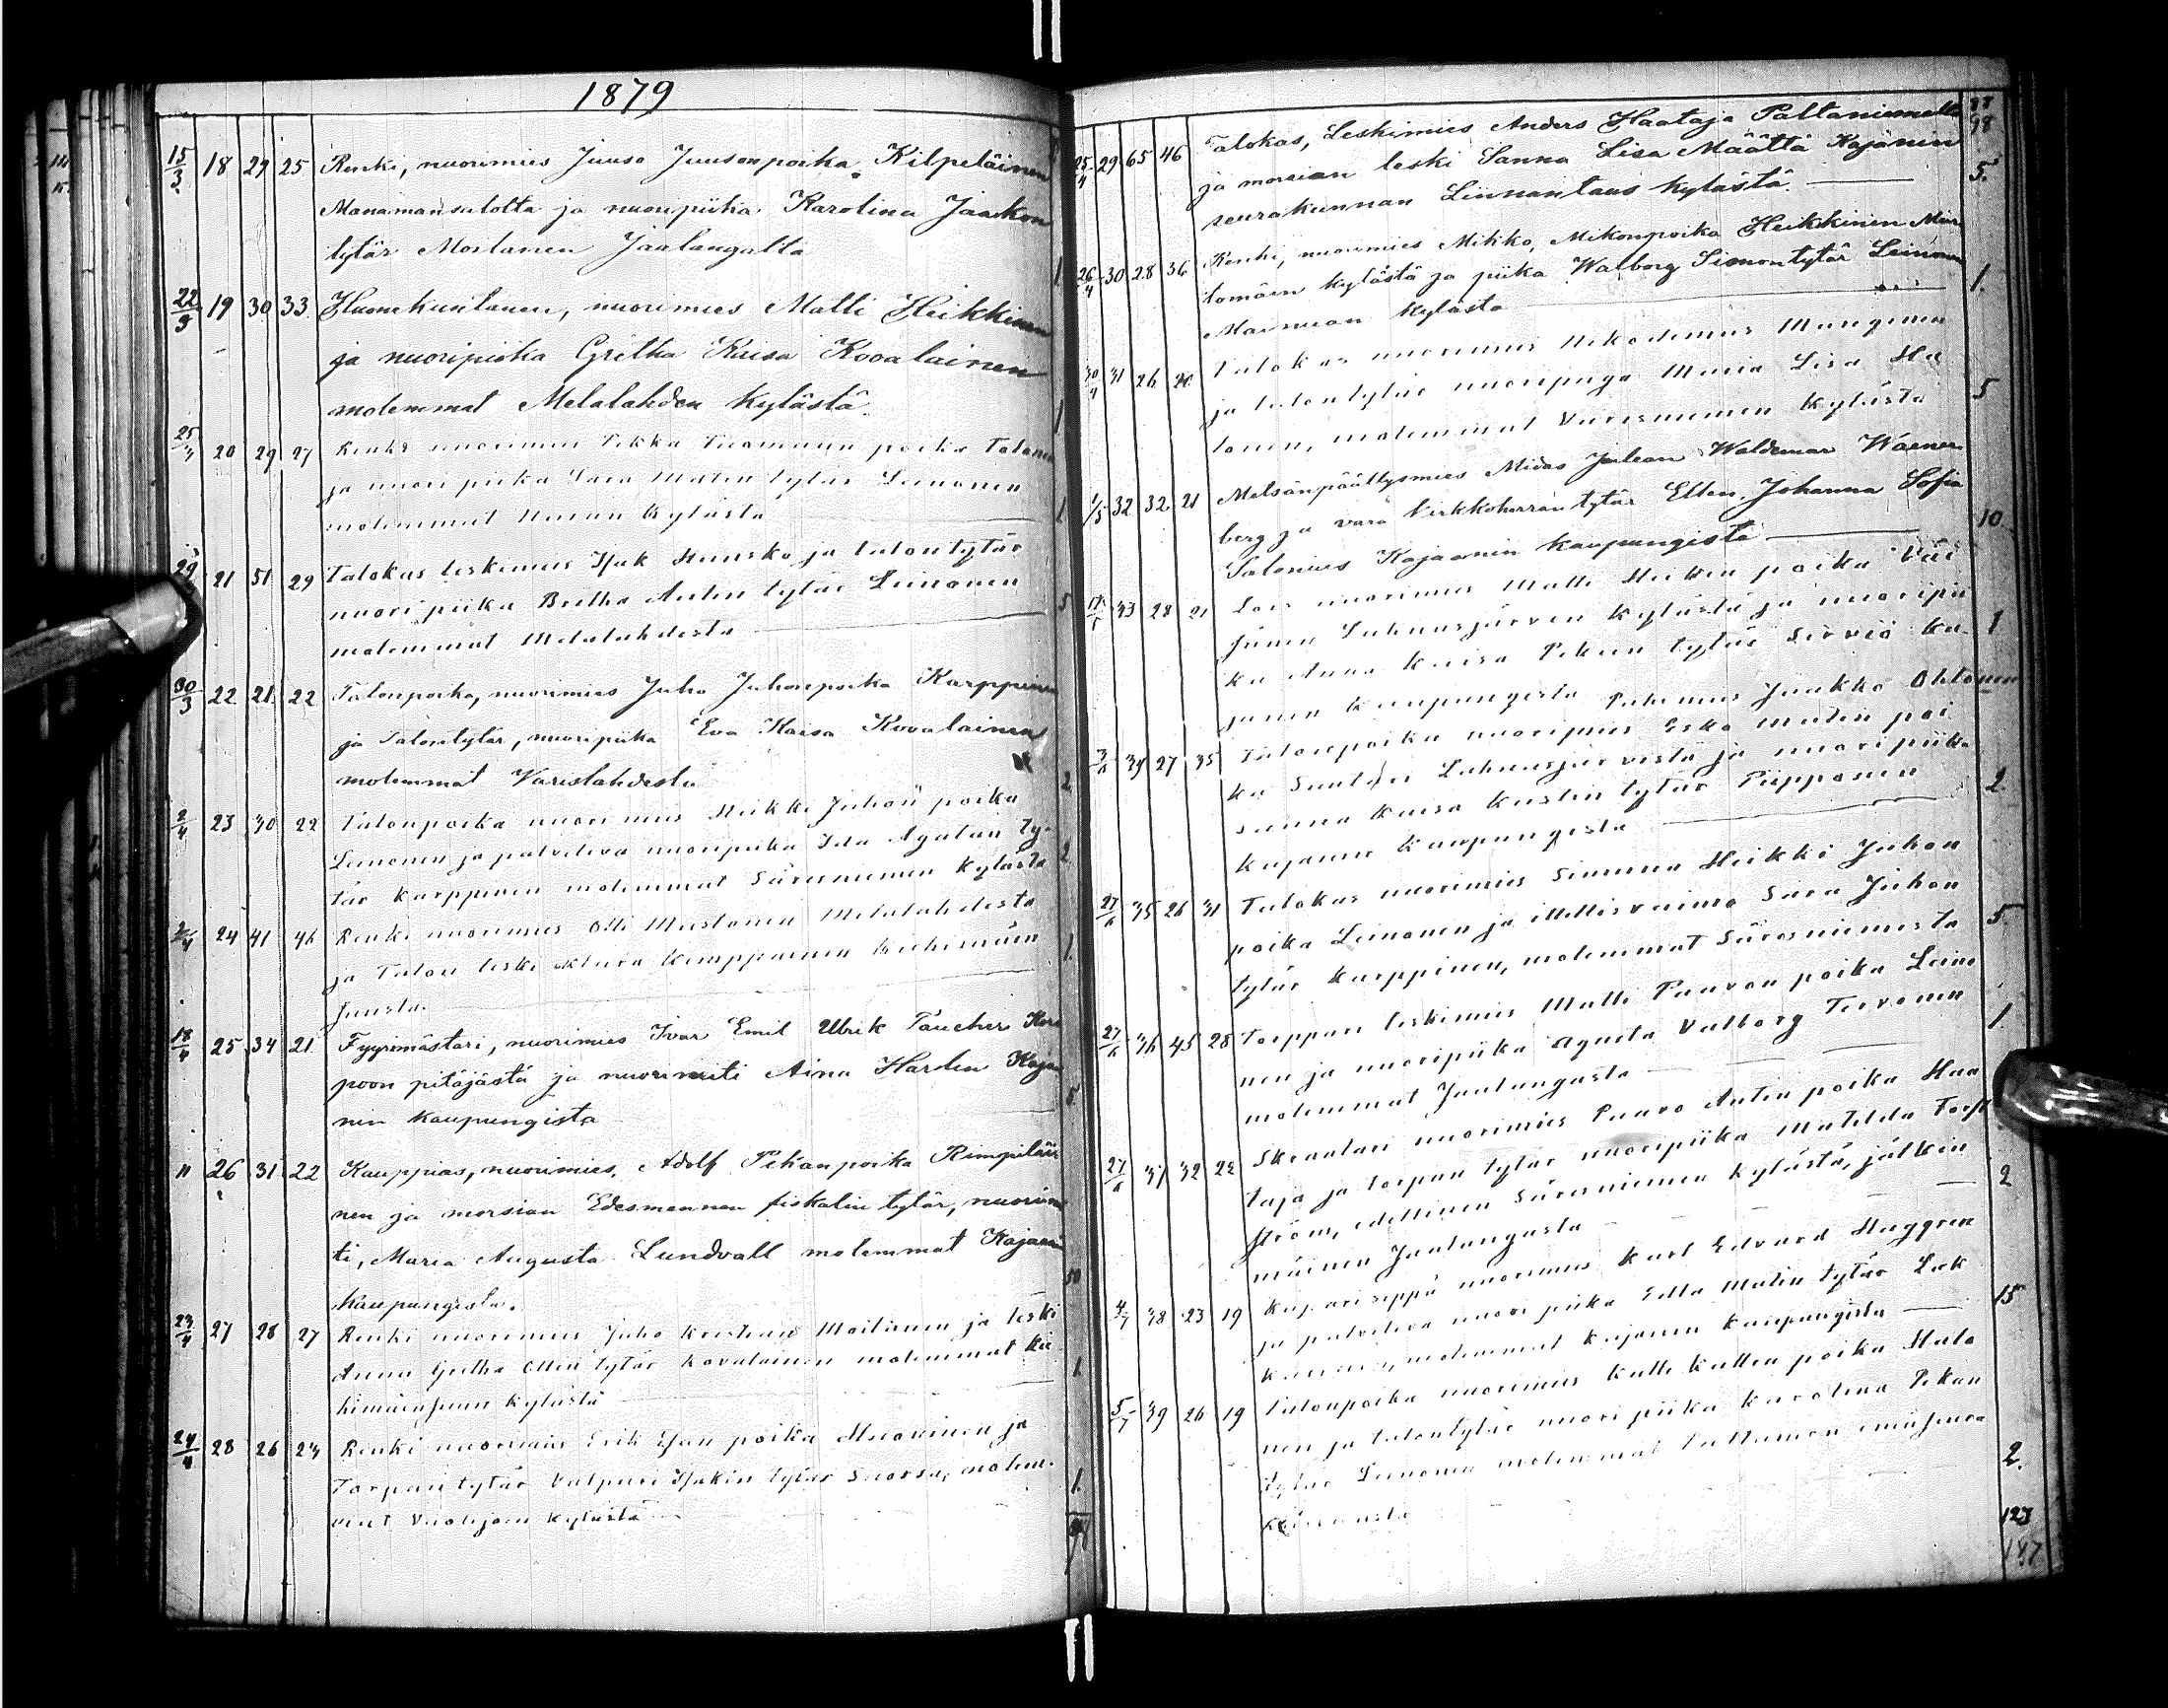 1879
15/3 18 29 25 Renki, nuorimies Juuso Juusonpoika Kilpeläinen
Manamansalolta ja nuoripiika Karolina Jaakon
tytär Mustanen Jaalangalta 1
22/3 19 30 33 Huonekuntanen, nuorimies Matti Heikkinen
ja nuoripiika Gretha Kaisa Kovalainen
molemmat Melalahden kylästä 1
25/3 20 29 27 Renki nuorimies Pekka Tuomaan poika
ja nuori piika Sara Matin tytär Leinonen
molemmat kylästä 1
29 21 51 29 Talokas leskimies Isak Hunsko ja talontytär
nuori piika Bretha Antin tytär Leinonen 5
molemmat Melalahdesta
30/3 22 21 22 Talonpoika, nuorimies Juho Juhonpoika Karppinen
ja Talontytär, nuoripiika Eva Kaisa Kovalainen
molemmat Varislahdesta 2
2/4 23 30 22 Talonpoika nuorimies Heikki Juhon poika
Leinonen ja palveleva nuoripiika Ida Agatan ty-
tär Karppinen molemmat Säresniemen kylästä 2
24 41 46 Renki nuorimies Olli Mustonen Melalahdesta
ja Talon leski Klara Kemppainen Kiehimäen 1.
suusta.
18/4 25 34 21 Fyyrimästari, nuorimies Ivar Emil Ulrik Taucher Kor
poon pitäjästä ja nuorineiti Aina Harlin Kaja
nin kaupungista
11 26 31 22 Kauppias, nuorimies, Adolf Pekanpoika Rimpiläi
nen ja morsian Edesmennen fiskalin tytär, nuorinei
ti, Maria Augusta Lundvall molemmat Kajaani
kaupungista. 50
23/4 27 28 27 Renki nuorimies Juho Kristian Moilanen ja leski
Anna Gretha Ollin tytär Kovalainen molemmat Kie 1
himäensuun kylästä
24/4 28 26 23 Renki nuorimies Erik Isan poika Mieoninen ja
Torpan tytär Valpuri Isakin tytär Suorsa, molem- 1.
mat Vuolijoen kylästä
25/4 29 65 46 Talokas, Leskimies Anders Haataja Paltaniemeltä 98
ja morsian leski Sanna Lisa Määttä Kajanin 5.
seurakunnan Linnantaus kylästä.
26/4 30 28 36 Renki, nuorimies Mikko, Mikonpoika Heikkinen Mie
tomäen kylästä ja piika Walborg Simontytär Leinonen
Mainuan kylästä 1.
30/4 31 26 20 Talokas nuorimies Nikodemus Manginen
ja talontytär nuoripiiga Maria Lisa Ha
tonen, molemmat Varisniemen kylästä 5
1/5 32 32 21 Metsänpäällysmies Midas Julean Waldemar Waenen
berg ja vara kirkkoherran tytär Ellen Johanna Sofia
Salonius Kajaanin kaupungista 10.
33 28 21 Lois nuorimies Matti Heikin poika Väi
sänen Lahnasjärven kylästä ja nuoripii
ka Anna Kaisa Pekan tytär Sirviö Ka- 1
janin kaupungista Puhemies Jaakko Ohtonen
3/6 34 27 35 Talonpoika nuorimies Esko Matin poi
ka Lahnasjärvestä ja nuoripiika
Sanna Kaisa Kustin tytär Piipponen 2.
Kajanin kaupungista
27/6 35 26 31 Talokas nuorimies Simuna Heikki Juhon
poika Leinonen ja itsellisvaimo Sara Juhon
tytär Karppinen, molemmat Säresniemestä 5.
27/6 36 45 28 Torppari leskimies Matti Paavon poika Leino
nen ja nuoripiika Agneta Valborg Tervonen
molemmat Jaalangasta 1.
27/6 37 32 22 Skraatari nuorimies Paavo Antin poika Haa
taja ja torpan tytär nuoripiika Matilda Forss
ström, edellinen Säresniemen kylästä, jälkim
mäinen Jaalangasta 2
4/7 38 23 19 Kupariseppä nuorimies Karl Edvard Haggren
ja palveleva nuori piika Edla Matin tytär Lesk
molemmat Kajanin kaupungista 15
5/7 39 26 19 Talonpoika nuorimies Kalle Kallen poika Hala
nen ja talontytär nuori piika Karolina Pekan
tytär Leinonen molemmat Paltamon emäseura
kunnasta 2.
123
147